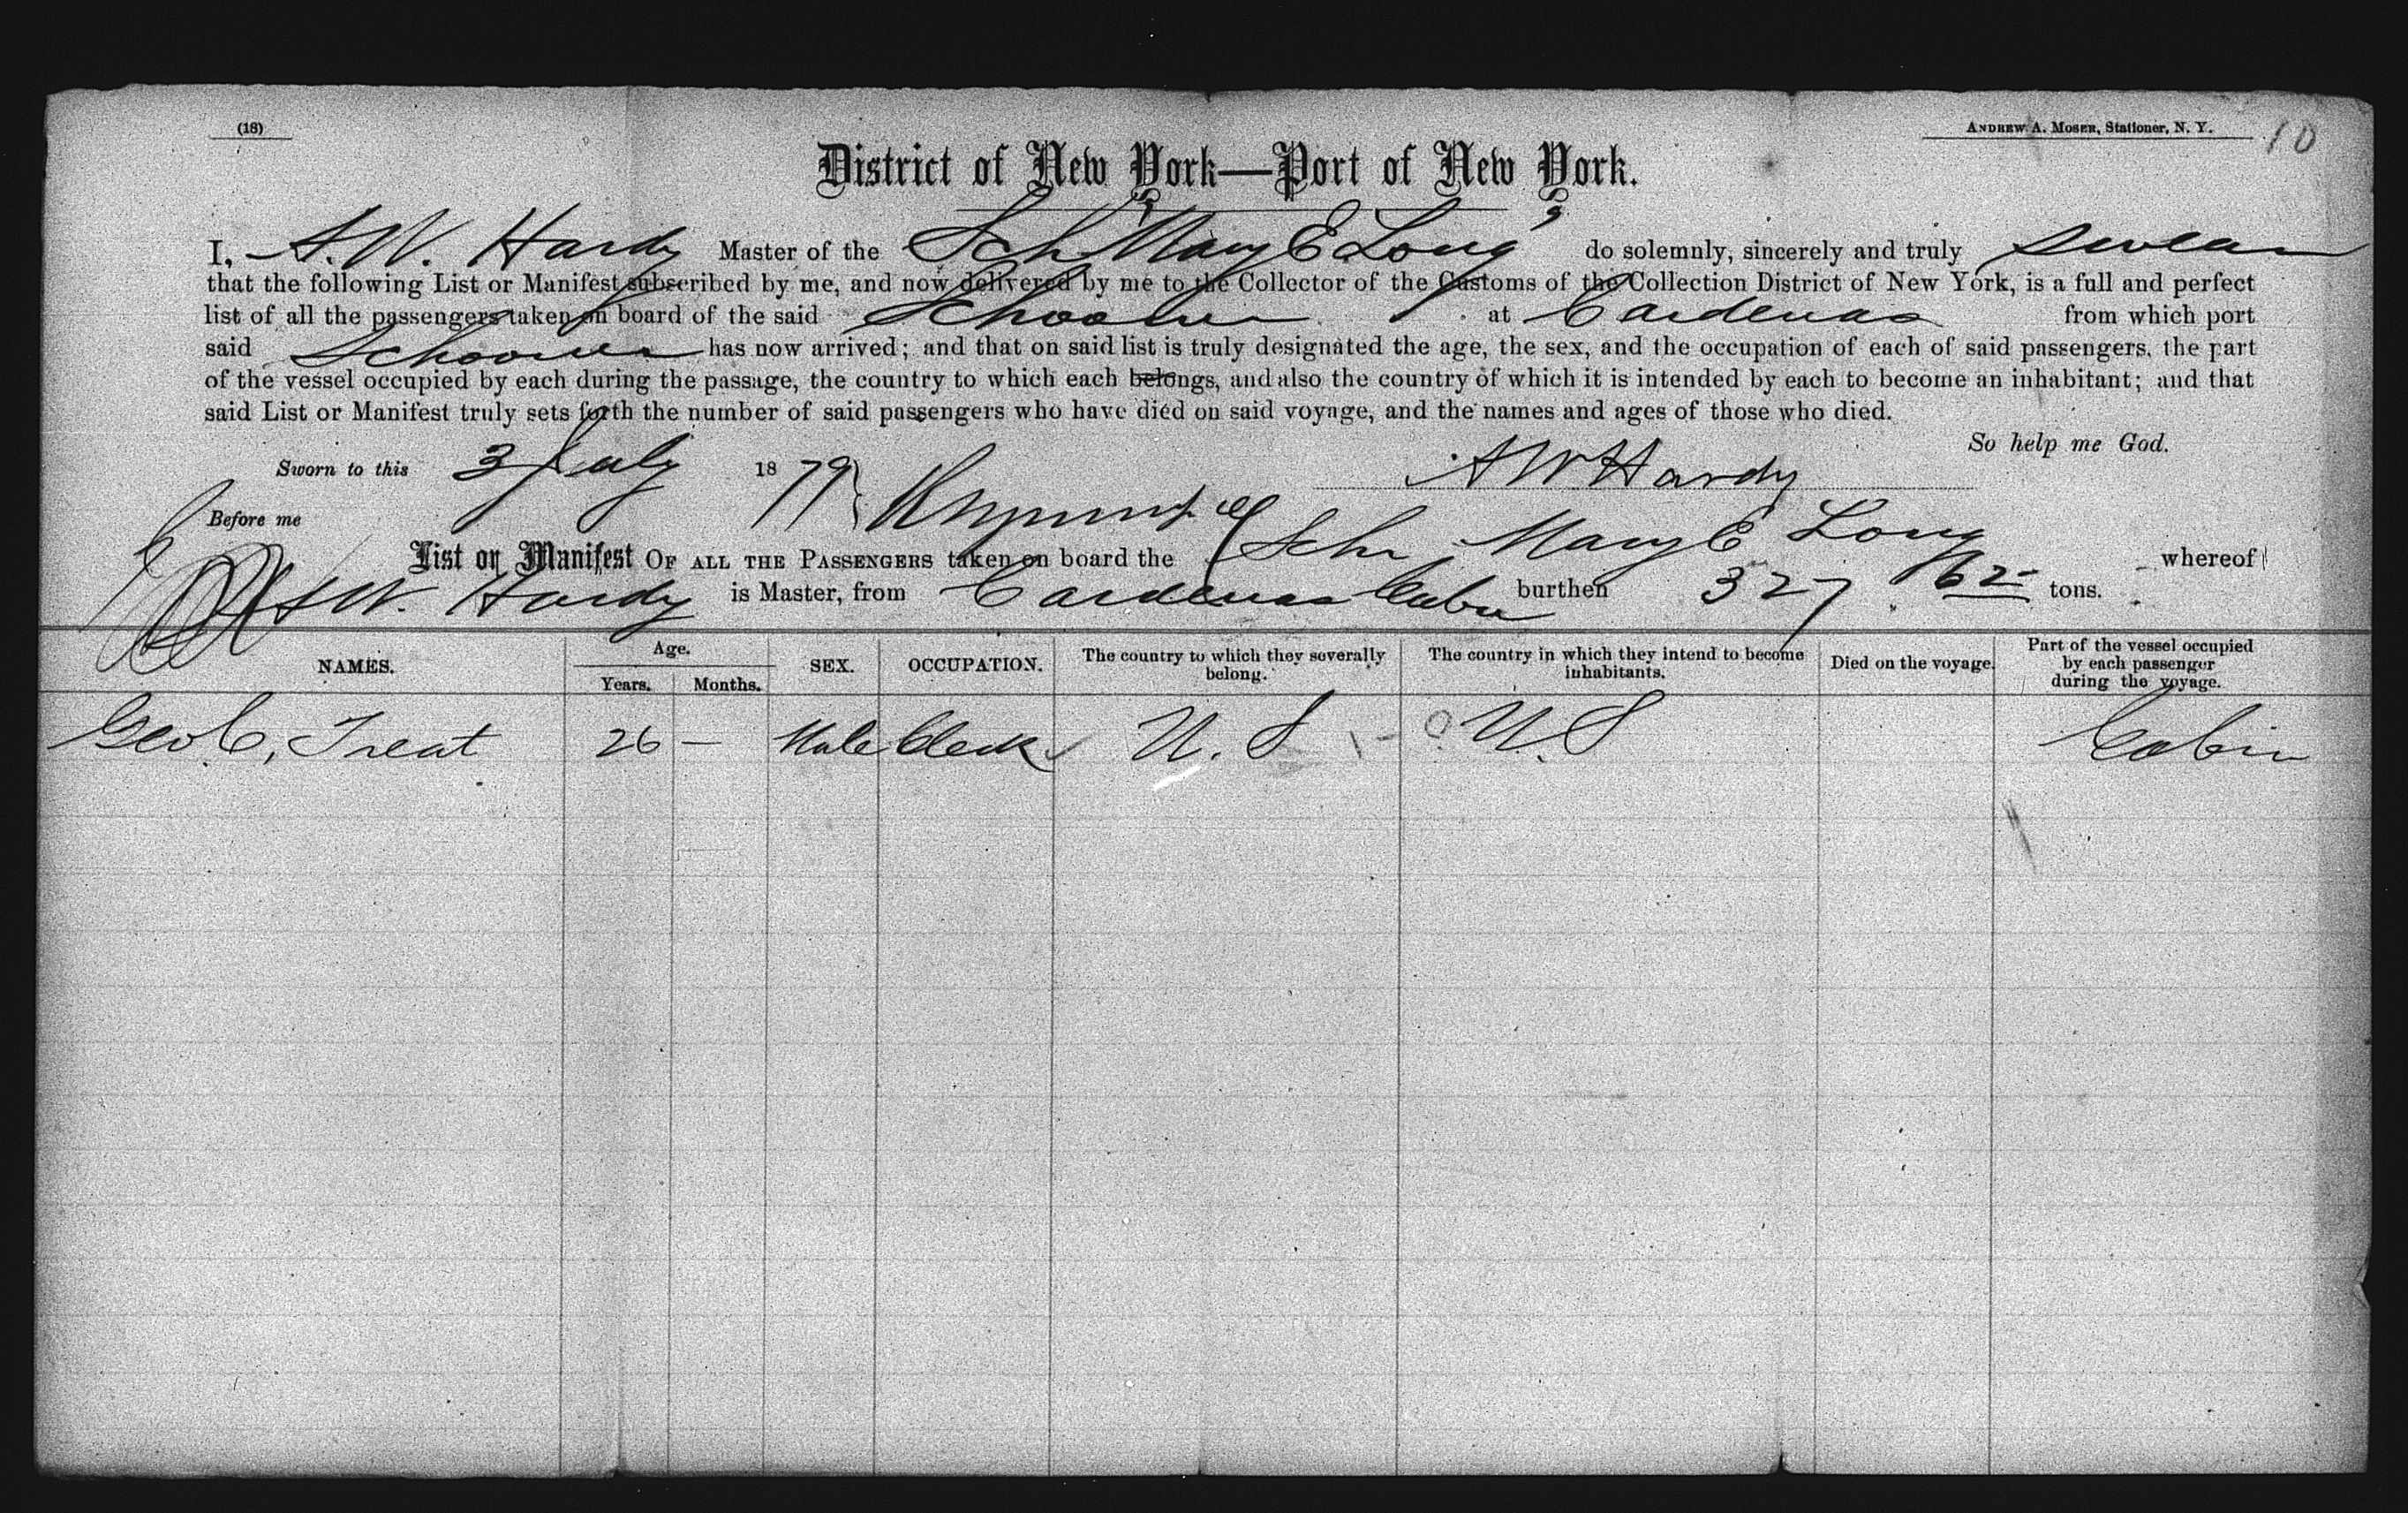 (18)
ANDREW A. MOSER, Stationer, N. Y.
10
District of New York—Port of New York.
I, A. W. Hardy Master of the Sch "Mary E Long" do solemnly, sincerely and truly swear
that the following List or Manifest subscribed by me, and now delivered by me to the Collector of the Customs of the Collection District of New York, is a full and perfect
list of all the passengers taken on board of the said Schooner at Cardenas from which port
said Schooner has now arrived; and that on said list is truly designated the age, the sex, and the occupation of each of said passengers, the part
of the vessel occupied by each during the passage, the country to which each belongs, and also the country of which it is intended by each to become an inhabitant; and that
said List or Manifest truly sets forth the number of said passengers who have died on said voyage, and the names and ages of those who died.
So help me God.
Sworn to this 3 July 1879
A W Hardy
Before me
List or Manifest OF ALL THE PASSENGERS taken on board the Schr Mary E Long whereof
A W. Hardy is Master, from Cardenas Cuba burthen 327 62 tons.
NAMES. Age. Years. Months. SEX. OCCUPATION. The country to which they severally belong. The country in which they intend to become inhabitants. Died on the voyage. Part of the vessel occupied by each passenger during the voyage.
Geo C, Treat 26 — Male Clerk U. S 1-0 U. S Cabin